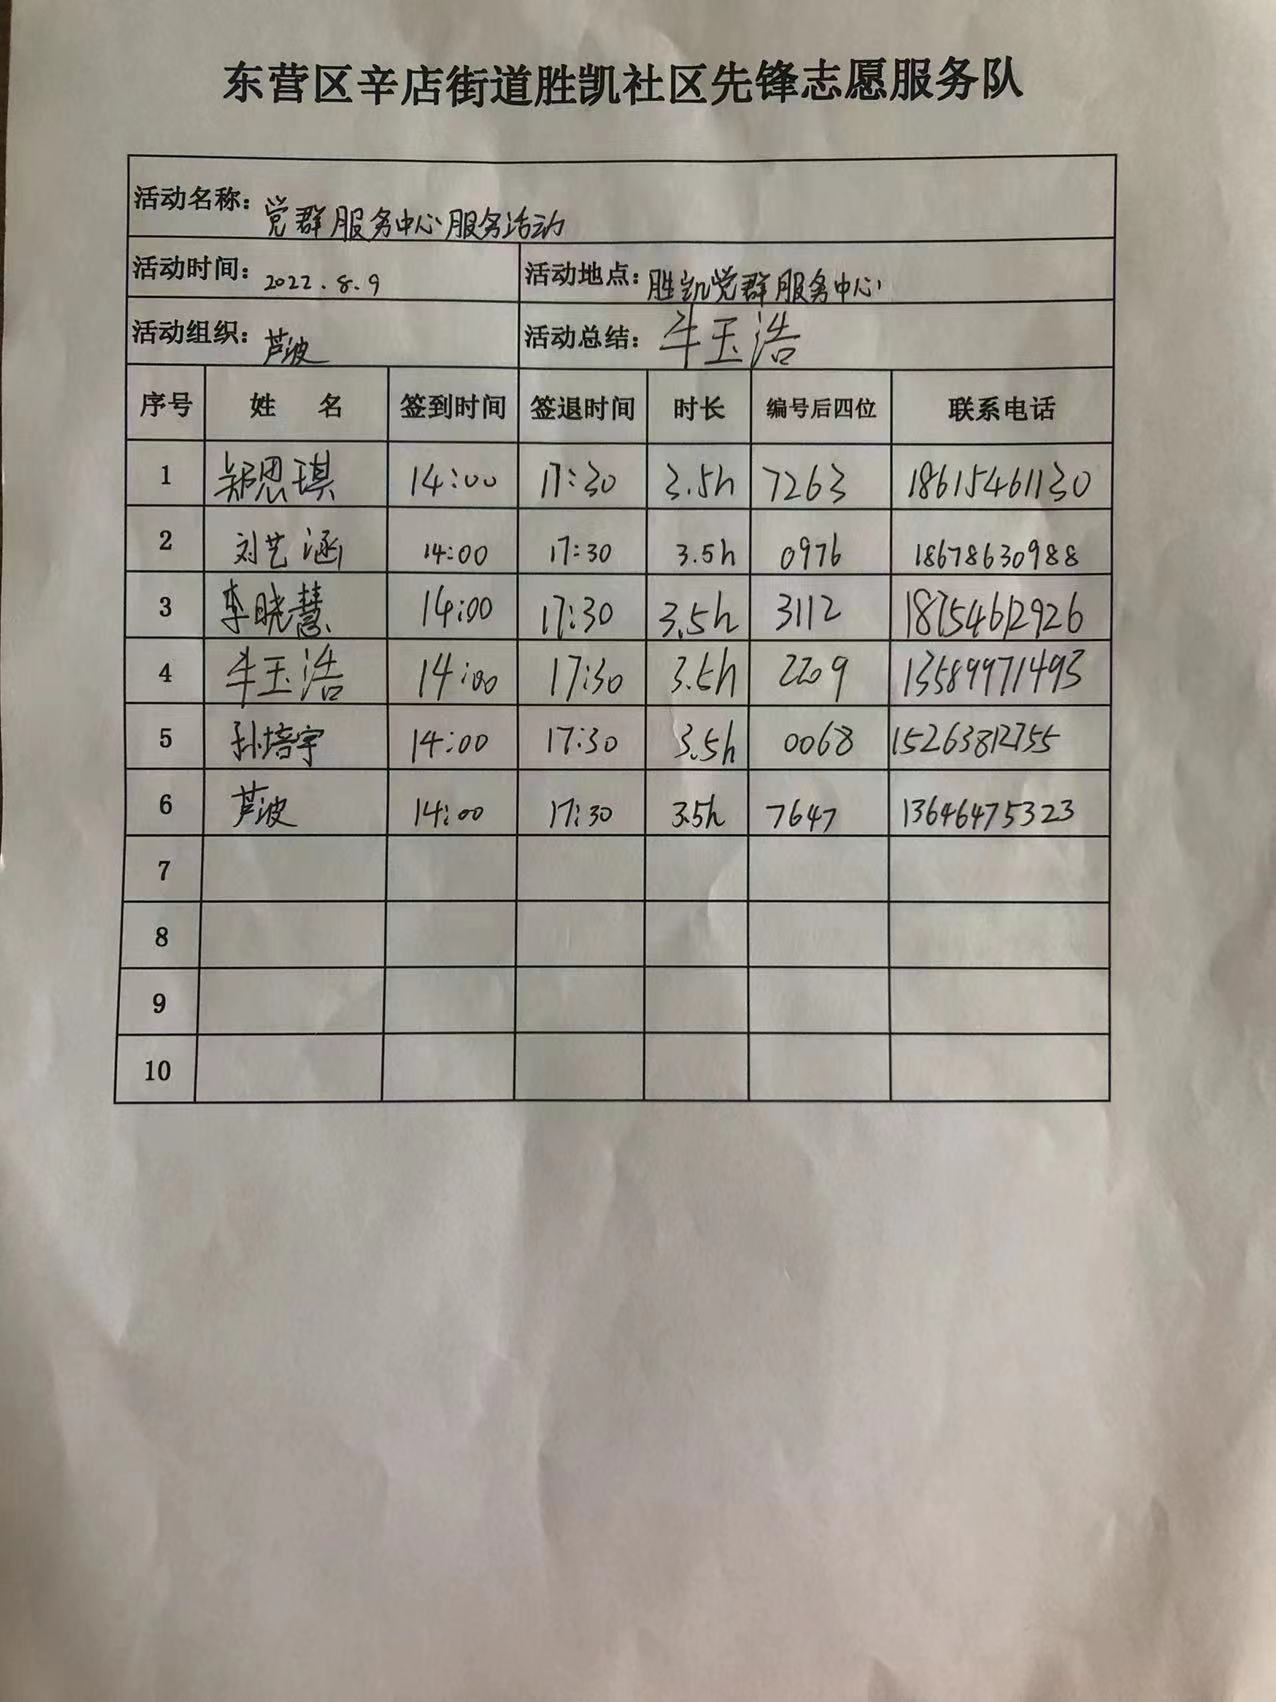 东营区辛店街道胜凯社区先锋志愿服务队
活动名称：党群服务中心服务活动
活动时间：2022.8.9 活动地点：胜凯党群服务中心
活动组织：芦波 活动总结：牛玉浩
序号 姓 名 签到时间 签退时间 时长 编号后四位 联系电话
1 郑思琪 14:00 17:30 3.5h 7263 18615461130
2 刘艺涵 14:00 17:30 3.5h 0976 18678630988
3 李晓慧 14:00 17:30 3.5h 3112 18754612926
4 牛玉浩 14:00 17:30 3.5h 2209 13589971493
5 孙培宇 14:00 17:30 3.5h 0068 15263812755
6 芦波 14:00 17:30 3.5h 7647 13646475323
7
8
9
10